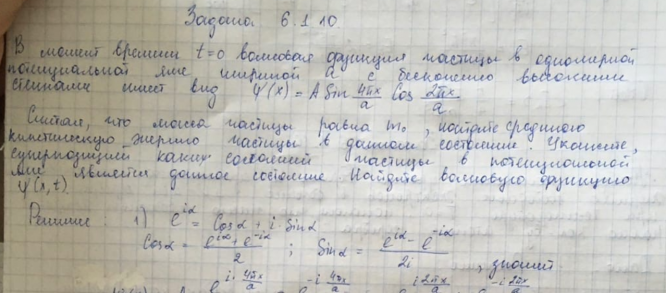 Задача 6.1.10
В момент времени t=0 волновая функция частицы в одномерной
потенциальной яме шириной a с бесконечно высокими
стенками имеет вид Ψ(x) = A Sin 4πx/a Cos 2πx/a
Считая, что масса частицы равна m₀, найдите среднюю
кинетическую энергию частицы в данном состоянии. Укажите,
суперпозицией каких состояний частицы в потенциальной
яме является данное состояние. Найдите волновую функцию
Ψ(x,t).
Решение: 1) e^{iα} = Cosα + i·Sinα
Cosα = (e^{iα} + e^{-iα})/2 ; Sinα = (e^{iα} - e^{-iα})/2i , значит